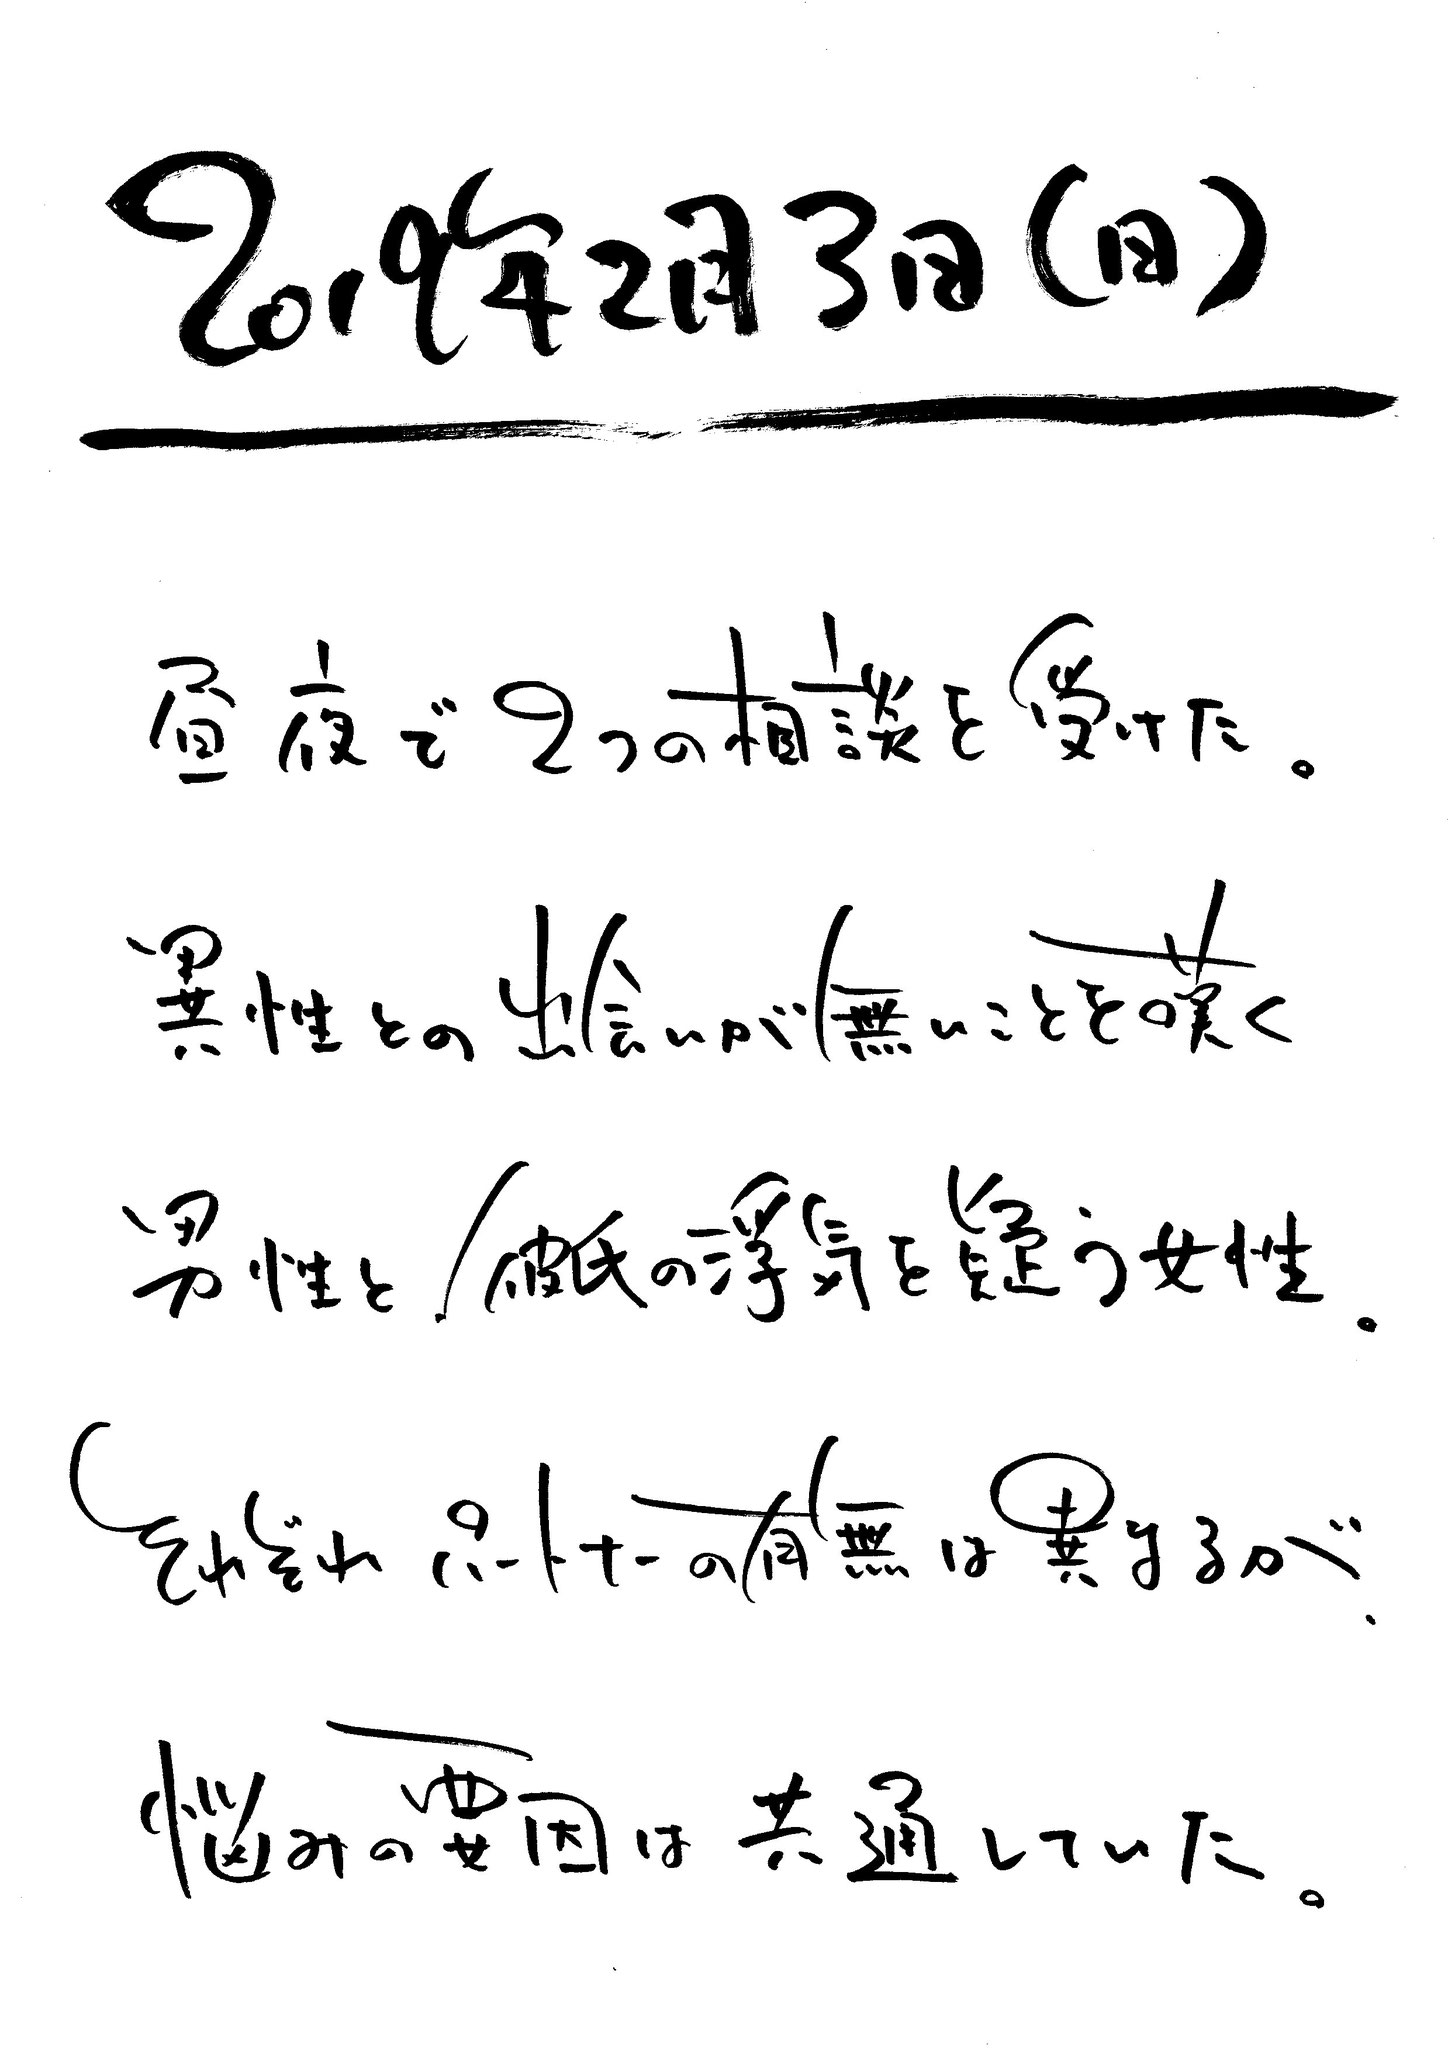 2019年2月3日(日)
昼夜で2つの相談を受けた。
異性との出会いが無いことを嘆く
男性と彼氏の浮気を疑う女性。
それぞれパートナーの有無は異なるが、
悩みの要因は共通していた。